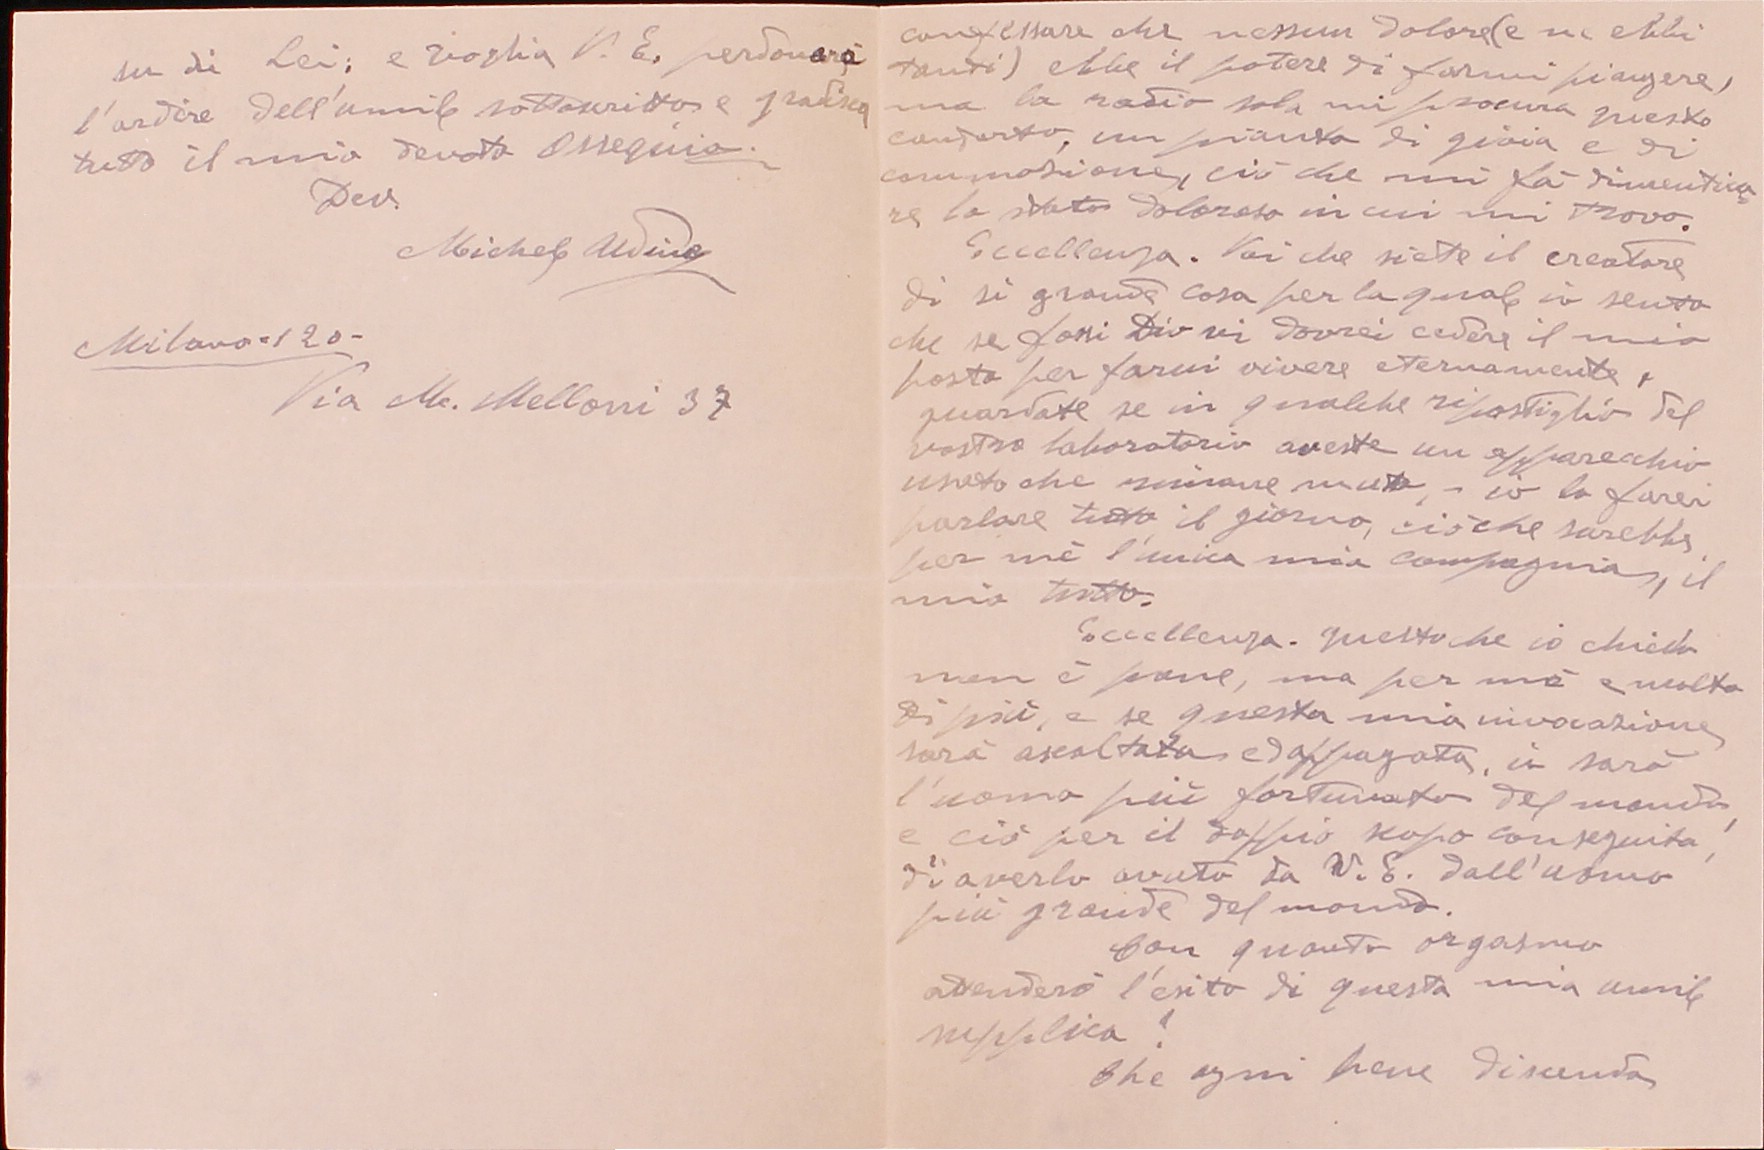 confessare che nessun dolore (e ne ebbi
tanti) ebbe il potere di farmi piangere,
ma la radio sola mi procura questo
conforto, un pianto di gioia e di
commozione, ciò che mi fà dimentica
re lo stato doloroso in cui mi trovo.
Eccellenza. Voi che siete il creatore
di si grande cosa per la quale io sento
che se fossi Dio vi dovrei cedere il mio
posto per farvi vivere eternamente,
guardate se in qualche ripostiglio del
vostro laboratorio aveste un apparecchio
usato che rimane muto, - io lo farei
parlare tutto il giorno, ciò che sarebbe
per mè l'unica mia compagnia, il
mio tutto.
Eccellenza. questo che io chiedo
non è pane, ma per mè e molto
di più, e se questa mia invocazione
sarà ascoltata ed appagata, io sarò
l'uomo più fortunato del mondo,
e ciò per il doppio scopo conseguito,
di averlo avuto da V. E. dall'uomo
più grande del mondo.
Con quanto orgasmo
attenderò l'esito di questa mia umile
supplica!
Che ogni bene discenda
su di Lei; e voglia V. E. perdonare
l'ardire dell'umile sottoscritto e gradisca
tutto il mio devoto Ossequio.
Dev.
Michele Udine
Milano - 120 -
Via M. Melloni 37